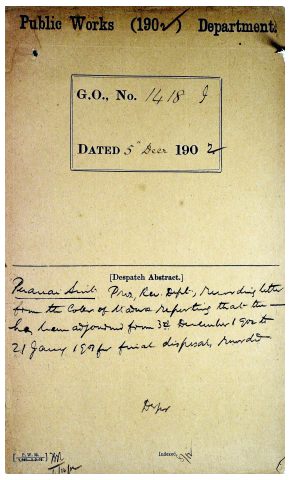 Public Works (1902) Department.
G.O., No. 1418 I
DATED 5th Decr 1902
[Despatch Abstract.]
Periyar Suit. Pros, Rev. Dept, recording letter
from the Coler of Madura reporting that the —
has been adjourned from 3rd December 1902 to
21 Jany 1903 for final disposal, recorded
Indexed,